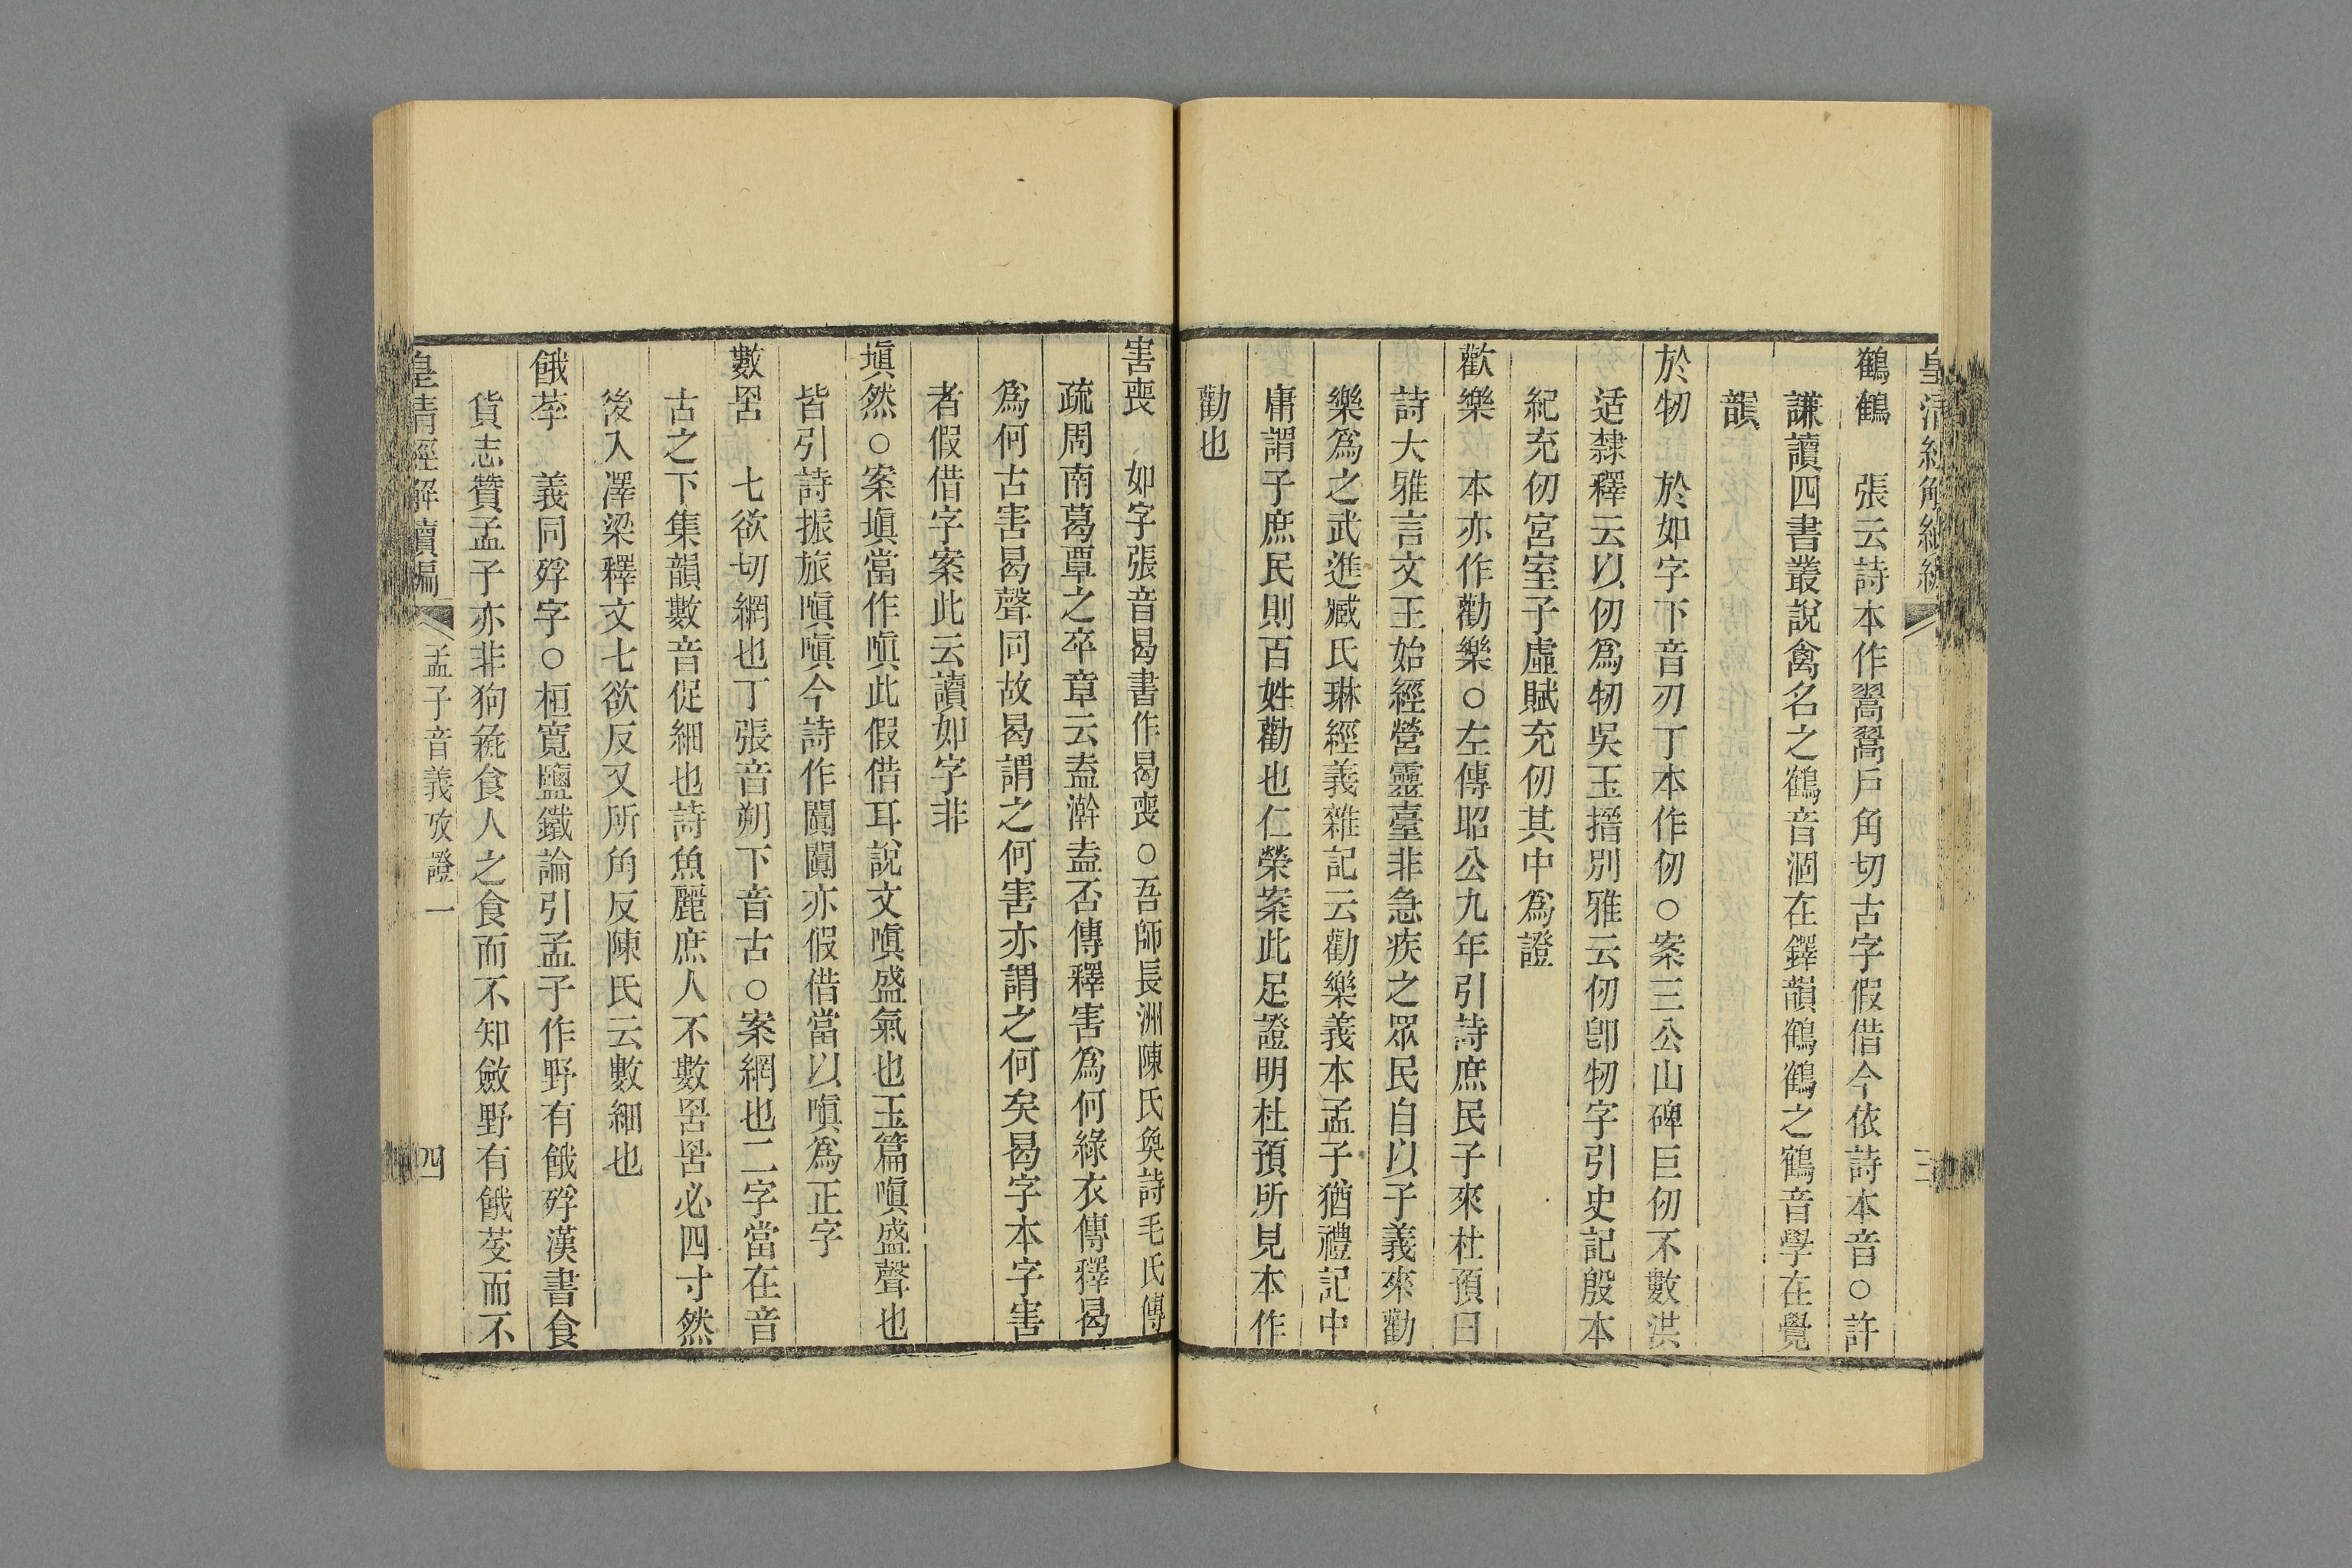 鶴鶴　張云詩本作翯翯戶角切古字假借今依詩本音○許
謙讀四書叢說禽名之鶴音涸在鐸韻鶴鶴之鶴音學在覺
韻
於牣　於如字下音刃丁本作仞○案三公山碑巨仞不數洪
适隸釋云以仞爲牣吳玉搢別雅云仞卽牣字引史記殷本
紀充仞宮室子虛賦充仞其中爲證
歡樂　本亦作勸樂○左傳昭公九年引詩庶民子來杜預曰
詩大雅言文王始經營靈臺非急疾之眾民自以子義來勸
樂爲之武進臧氏琳經義雜記云勸樂義本孟子猶禮記中
庸謂子庶民則百姓勸也仁榮案此足證明杜預所見本作
勸也
害喪　如字張音曷書作曷喪○吾師長洲陳氏奐詩毛氏傳
疏周南葛覃之卒章云盍澣盍否傳釋害爲何綠衣傳釋曷
爲何古害曷聲同故曷謂之何害亦謂之何矣曷字本字害
者假借字案此云讀如字非
塡然○案塡當作嗔此假借耳說文嗔盛氣也玉篇嗔盛聲也
皆引詩振旅嗔嗔今詩作闐闐亦假借當以嗔爲正字
數罟　七欲切網也丁張音朔下音古○案網也二字當在音
古之下集韻數音促細也詩魚麗庶人不數罟罟必四寸然
後入澤梁釋文七欲反又所角反陳氏云數細也
餓莩　義同殍字○桓寬鹽鐵論引孟子作野有餓殍漢書食
貨志贊孟子亦非狗彘食人之食而不知斂野有餓芆而不
皇清經解續編　孟子音義攷證一　四